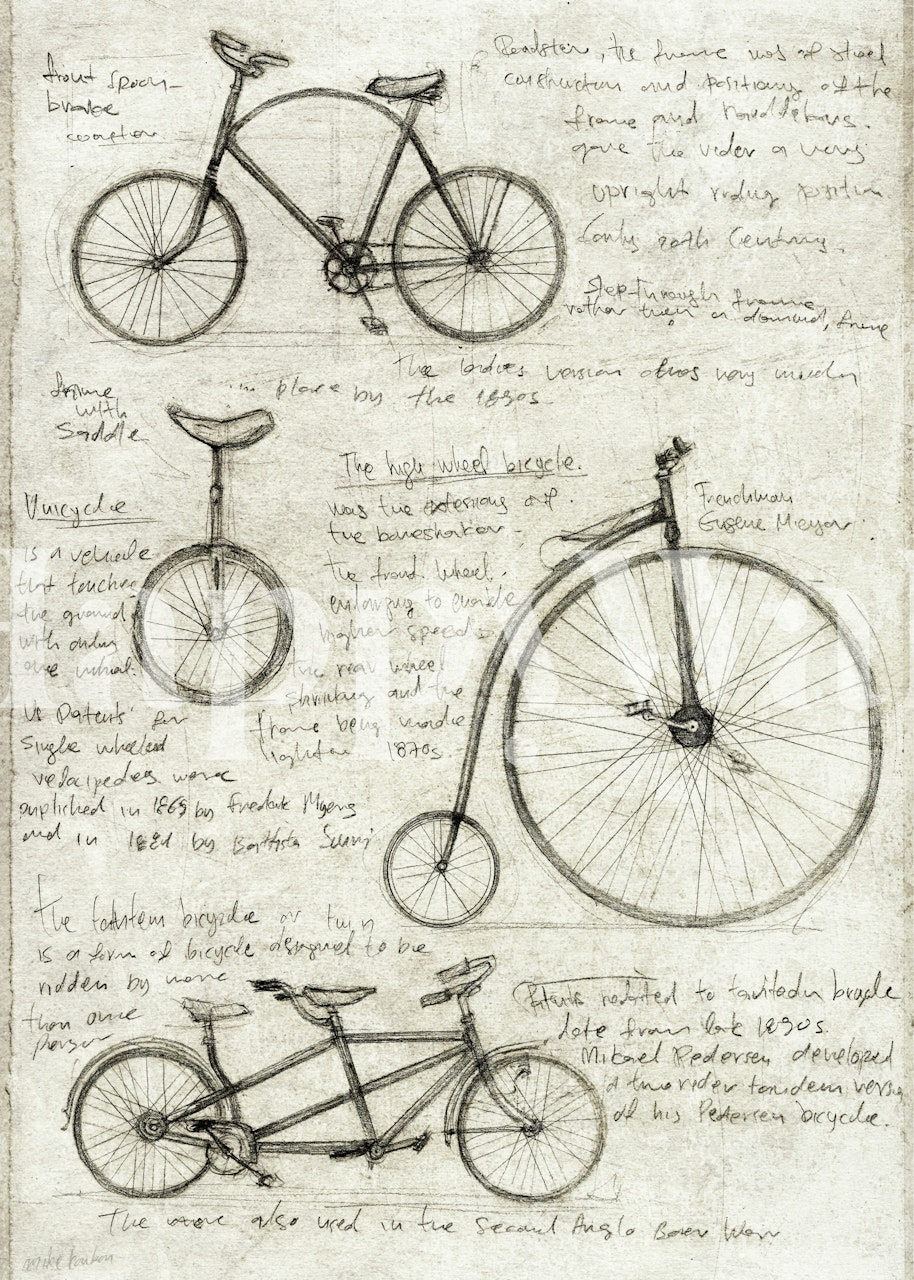 front spoon
brake
Roadster, the frame was of steel
construction and positions of the
frame and handlebars.
gave the rider a very
upright riding position
Early 20th Century.
Step through frame
rather than a diamond frame
The ladies version was very much
in place by the 1890s
frame
with
Saddle
Unicycle
is a vehicle
that touches
the ground
with only
one wheel.
US Patents for
Single wheeled
velocipedes were
published in 1869 by Frederick Myers
and in 1881 by Battista Scuri
The high wheel bicycle.
was the extension of
the boneshaker
the front wheel
enlarging to enable
higher speeds
the rear wheel
shrinking and the
frame being made
lighter 1870s.
Frenchman
Eugene Meyer
The tandem bicycle or twin
is a form of bicycle designed to be
ridden by more
than one
person
Patents related to tandem bicycle
date from late 1890s.
Mikael Pedersen developed
a two rider tandem version
of his Pedersen bicycle.
The were also used in the Second Anglo Boer War